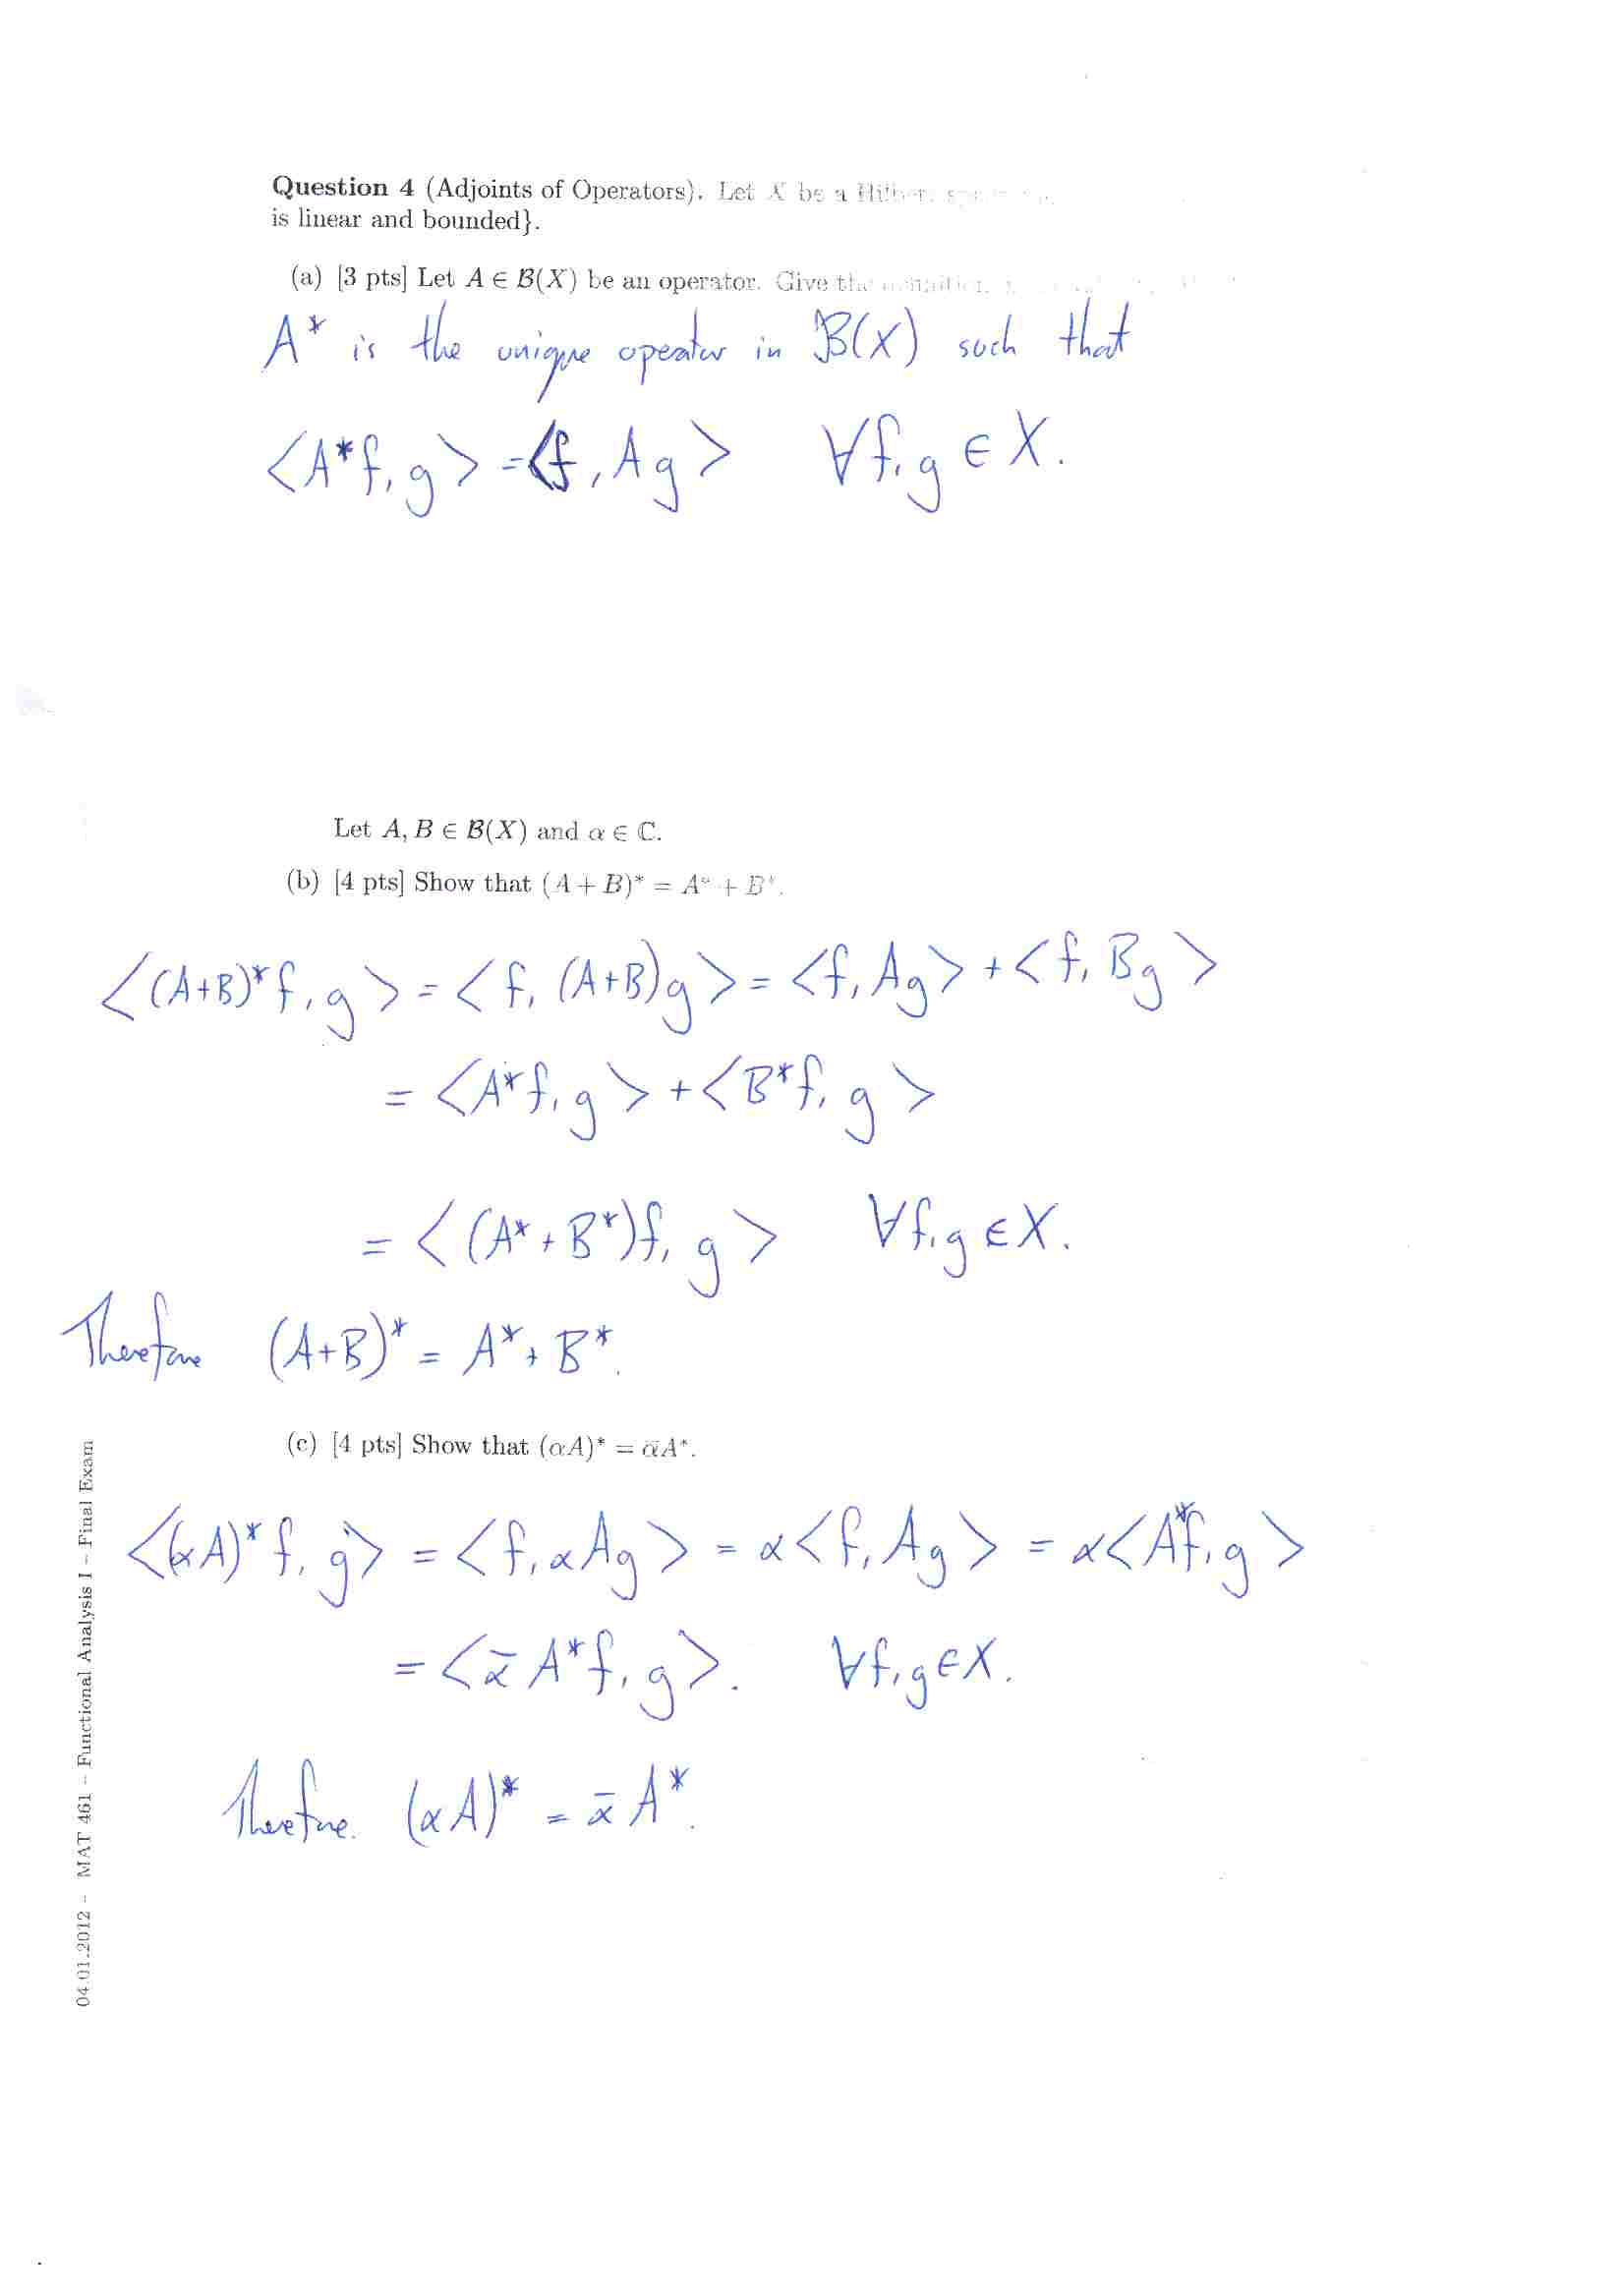 Question 4 (Adjoints of Operators). Let X be a Hilbert
is linear and bounded}.
(a) [3 pts] Let A ∈ B(X) be an operator. Give the
A* is the unique operator in B(X) such that
<A*f, g> = <f, Ag> ∀f, g ∈ X.
Let A, B ∈ B(X) and α ∈ ℂ.
(b) [4 pts] Show that (A + B)* = A* + B*.
<(A+B)*f, g> = <f, (A+B)g> = <f, Ag> + <f, Bg>
= <A*f, g> + <B*f, g>
= <(A* + B*)f, g> ∀f, g ∈ X.
Therefore (A+B)* = A* + B*.
(c) [4 pts] Show that (αA)* = ᾱA*.
<(αA)*f, g> = <f, αAg> = α<f, Ag> = α<A*f, g>
= <ᾱA*f, g>. ∀f, g ∈ X.
Therefore. (αA)* = ᾱA*.
04.01.2012 - MAT 461 – Functional Analysis I – Final Exam